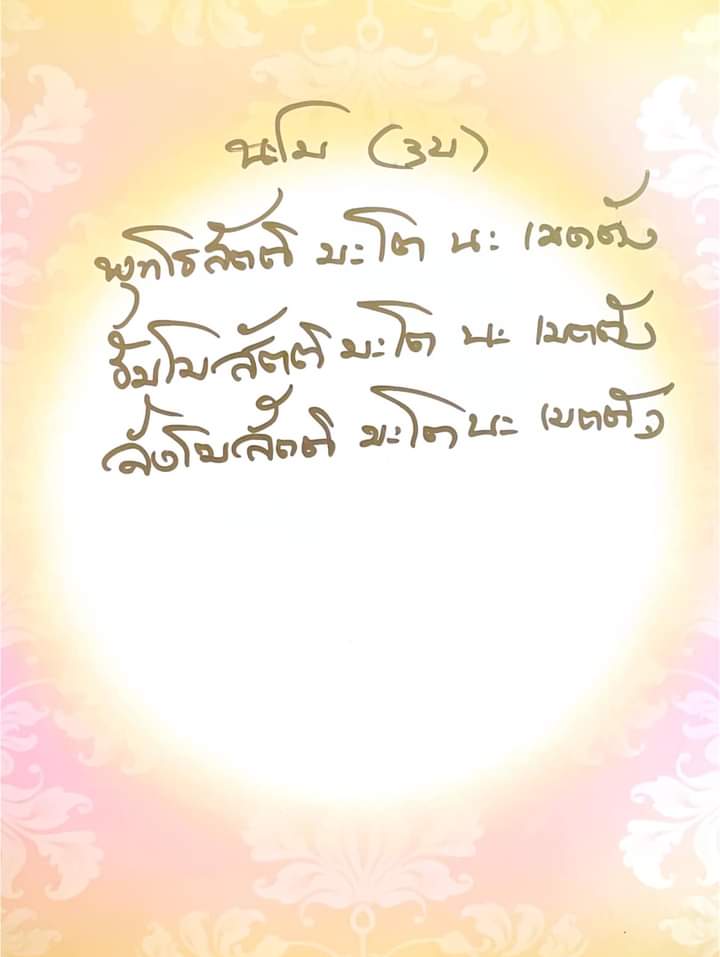 นะโม (3จบ)
พุทโธสัตติ มะโต นะ เมตตัง
ธัมโมสัตติ มะโต นะ เมตตัง
สังโฆสัตติ มะโต นะ เมตตัง